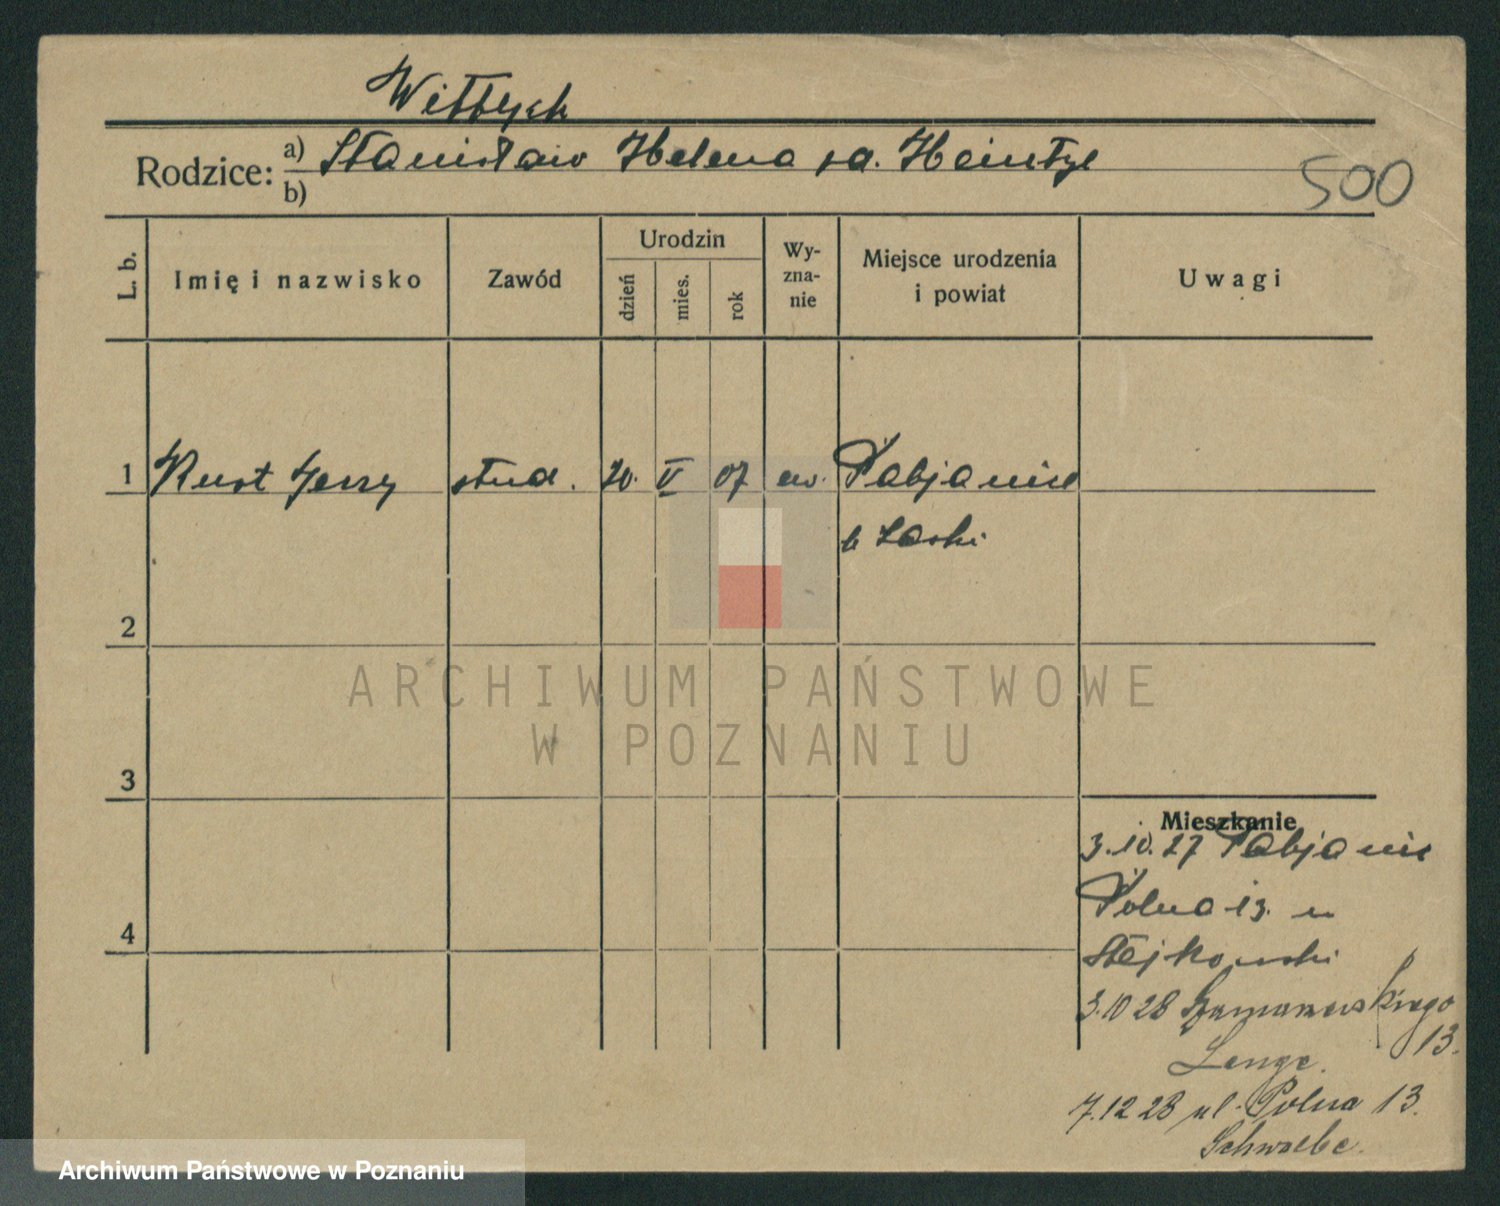 Wittych
Rodzice: a) Stanisław Helena za. Heintzl
b)
500
L. b.
Imię i nazwisko
Zawód
Urodzin
dzień
mies.
rok
Wy-
zna-
nie
Miejsce urodzenia
i powiat
Uwagi
1 Kurt Jerzy stud. 20. V 07 ew. Pabjanice
p Łaski
2
ARCHIWUM PAŃSTWOWE
W POZNANIU
3
Mieszkanie
3.10.27 Pabjanic
Polna 13. u
4
Stejkowski
3.10 28 Szamarzewskiego
13.
Lange.
7.12 28 ul. Polna 13.
Schwalbe.
Archiwum Państwowe w Poznaniu